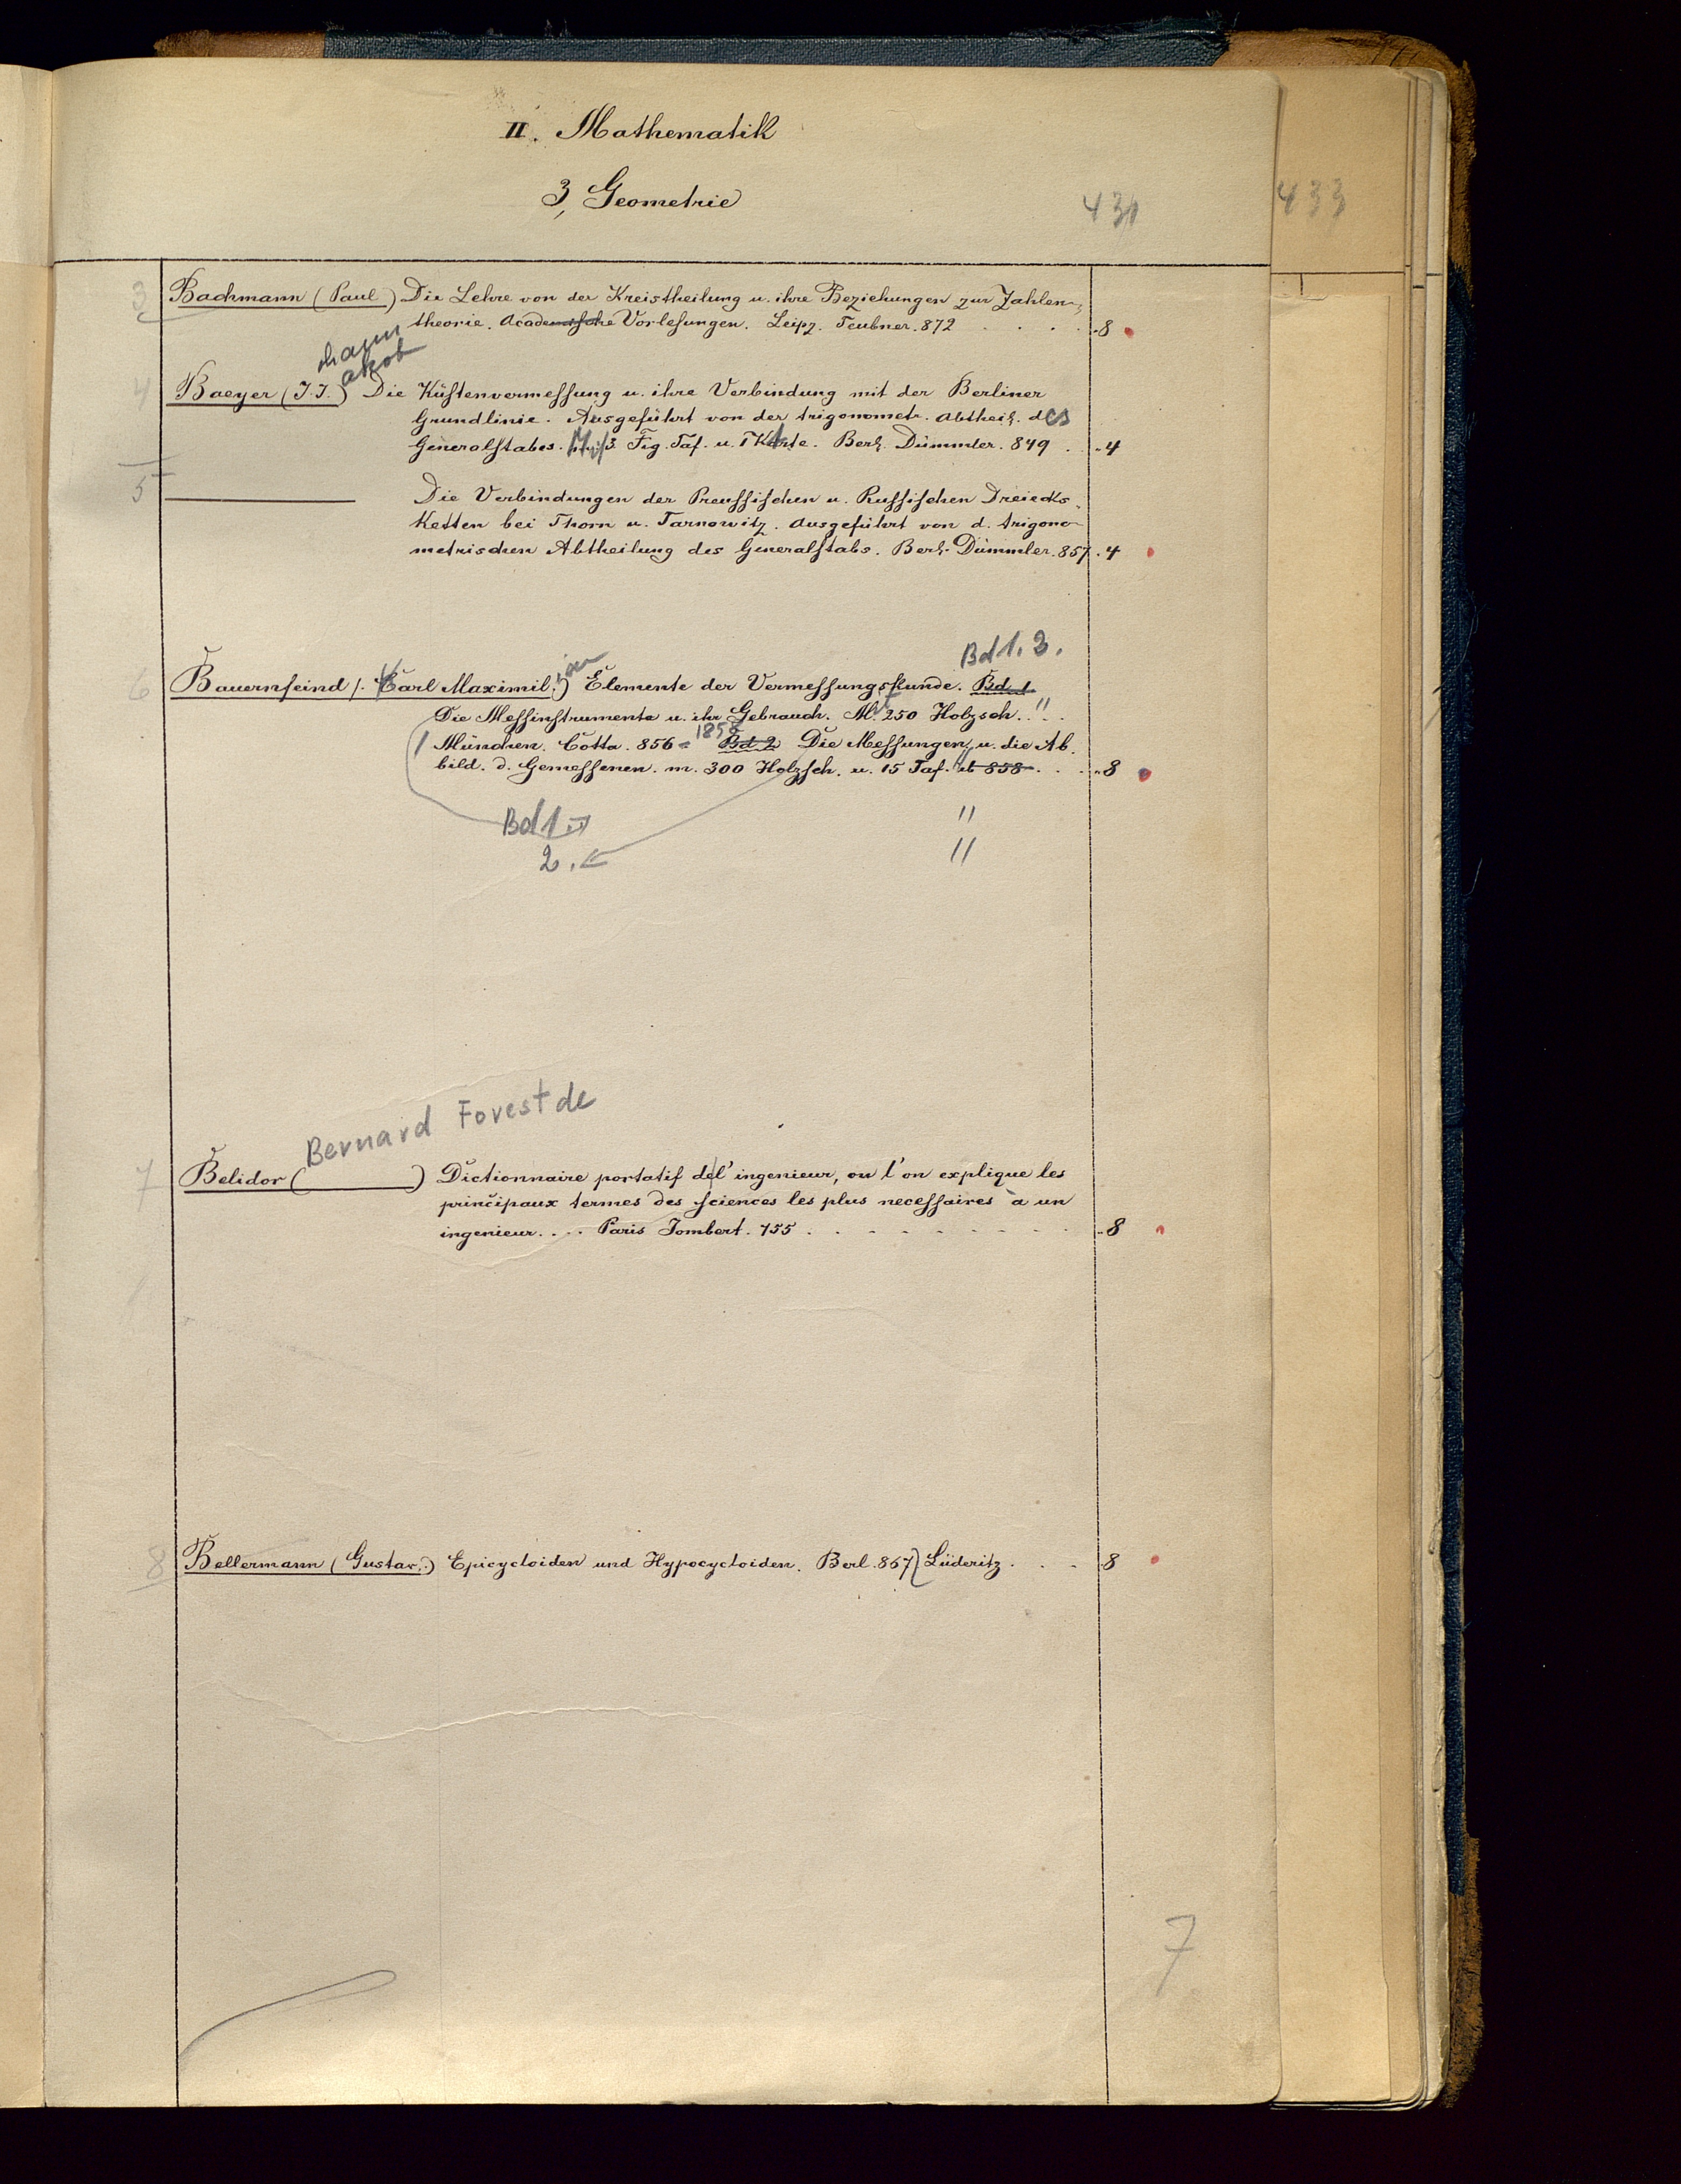 II. Mathematik
3, Geometrie
431
433
3 Bachmann (Paul) Die Lehre von der Kreistheilung u. ihre Beziehungen zur Zahlen-
theorie. Academische Vorlesungen. Leipz. Teubner. 872 . . . . 8
hann
akob
4 Baeyer (J. J.) Die Küstenvermessung u. ihre Verbindung mit der Berliner
Grundlinie. Ausgeführt von der trigonometr. Abtheil. des
Generalstabes. Mit 3 Fig. Taf. u. 1 Karte. Berl. Dümmler. 849 . . 4
5 Die Verbindungen der Preussischen u. Russischen Dreiecks-
Ketten bei Thorn u. Tarnowitz. Ausgeführt von d. trigono-
metrischen Abtheilung des Generalstabs. Berl. Dümmler. 857 . 4
Bd 1. 2.
ian
6 Bauernfeind (Carl Maximil.) Elemente der Vermessungskunde. Bd. 1.
Die Messinstrumente u. ihr Gebrauch. M. 250 Holzsch. . "
1858
München. Cotta. 856 - Bd. 2 Die Messungen u. die Ab-
bild. d. Gemessenen. m. 300 Holzsch. u. 15 Taf. ib 858 . . . 8
Bd 1. "
2. "
Bernard Forest de
7 Belidor ( ) Dictionnaire portatif de l'ingenieur, ou l'on explique les
principaux termes des sciences les plus necessaires à un
ingenieur . . . . Paris Jombert. 755 . . . . . . . . . 8
8 Bellermann (Gustav.) Epicycloiden und Hypocycloiden. Berl. 867 Lüderitz . . . 8
7